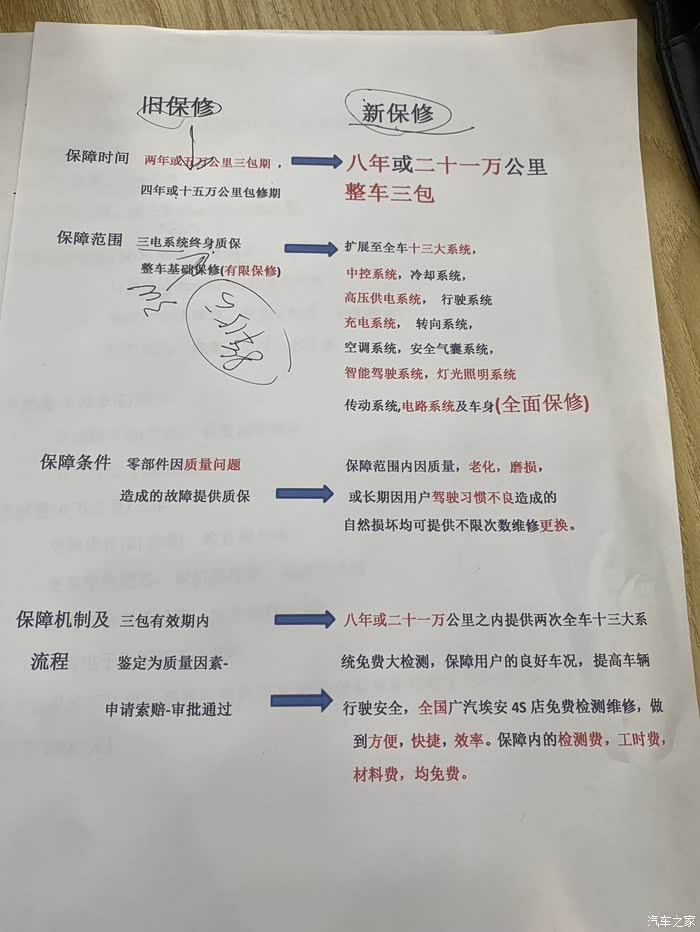 旧保修 新保修
保障时间 两年或五万公里三包期， 八年或二十一万公里
四年或十五万公里包修期 整车三包
保障范围 三电系统终身质保 扩展至全车十三大系统，
整车基础保修(有限保修) 中控系统，冷却系统，
高压供电系统， 行驶系统
充电系统， 转向系统，
空调系统，安全气囊系统，
智能驾驶系统，灯光照明系统
传动系统,电路系统及车身(全面保修)
保障条件 零部件因质量问题 保障范围内因质量，老化，磨损，
造成的故障提供质保 或长期因用户驾驶习惯不良造成的
自然损坏均可提供不限次数维修更换。
保障机制及 三包有效期内 八年或二十一万公里之内提供两次全车十三大系
流程 鉴定为质量因素- 统免费大检测，保障用户的良好车况，提高车辆
申请索赔-审批通过 行驶安全，全国广汽埃安 4S 店免费检测维修，做
到方便，快捷，效率。保障内的检测费，工时费，
材料费，均免费。
汽车之家